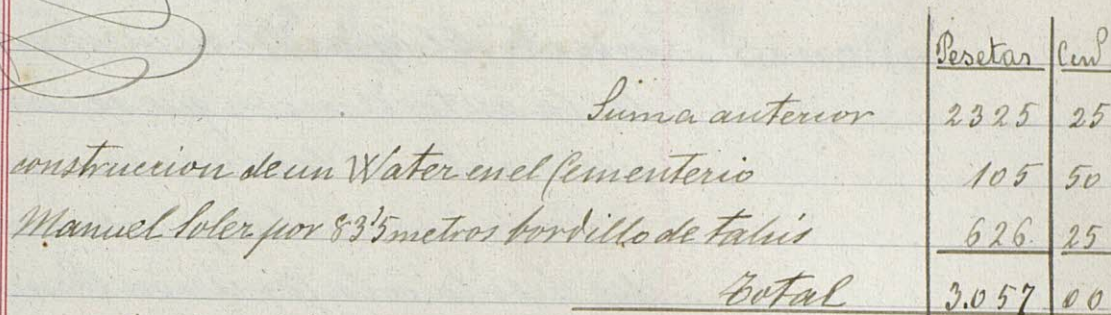 Pesetas Cent
Suma anterior 2325 25
construccion de un Water en el Cementerio 105 50
Manuel Soler por 83'5 metros bordillo de talús 626 25
Total 3.057 00